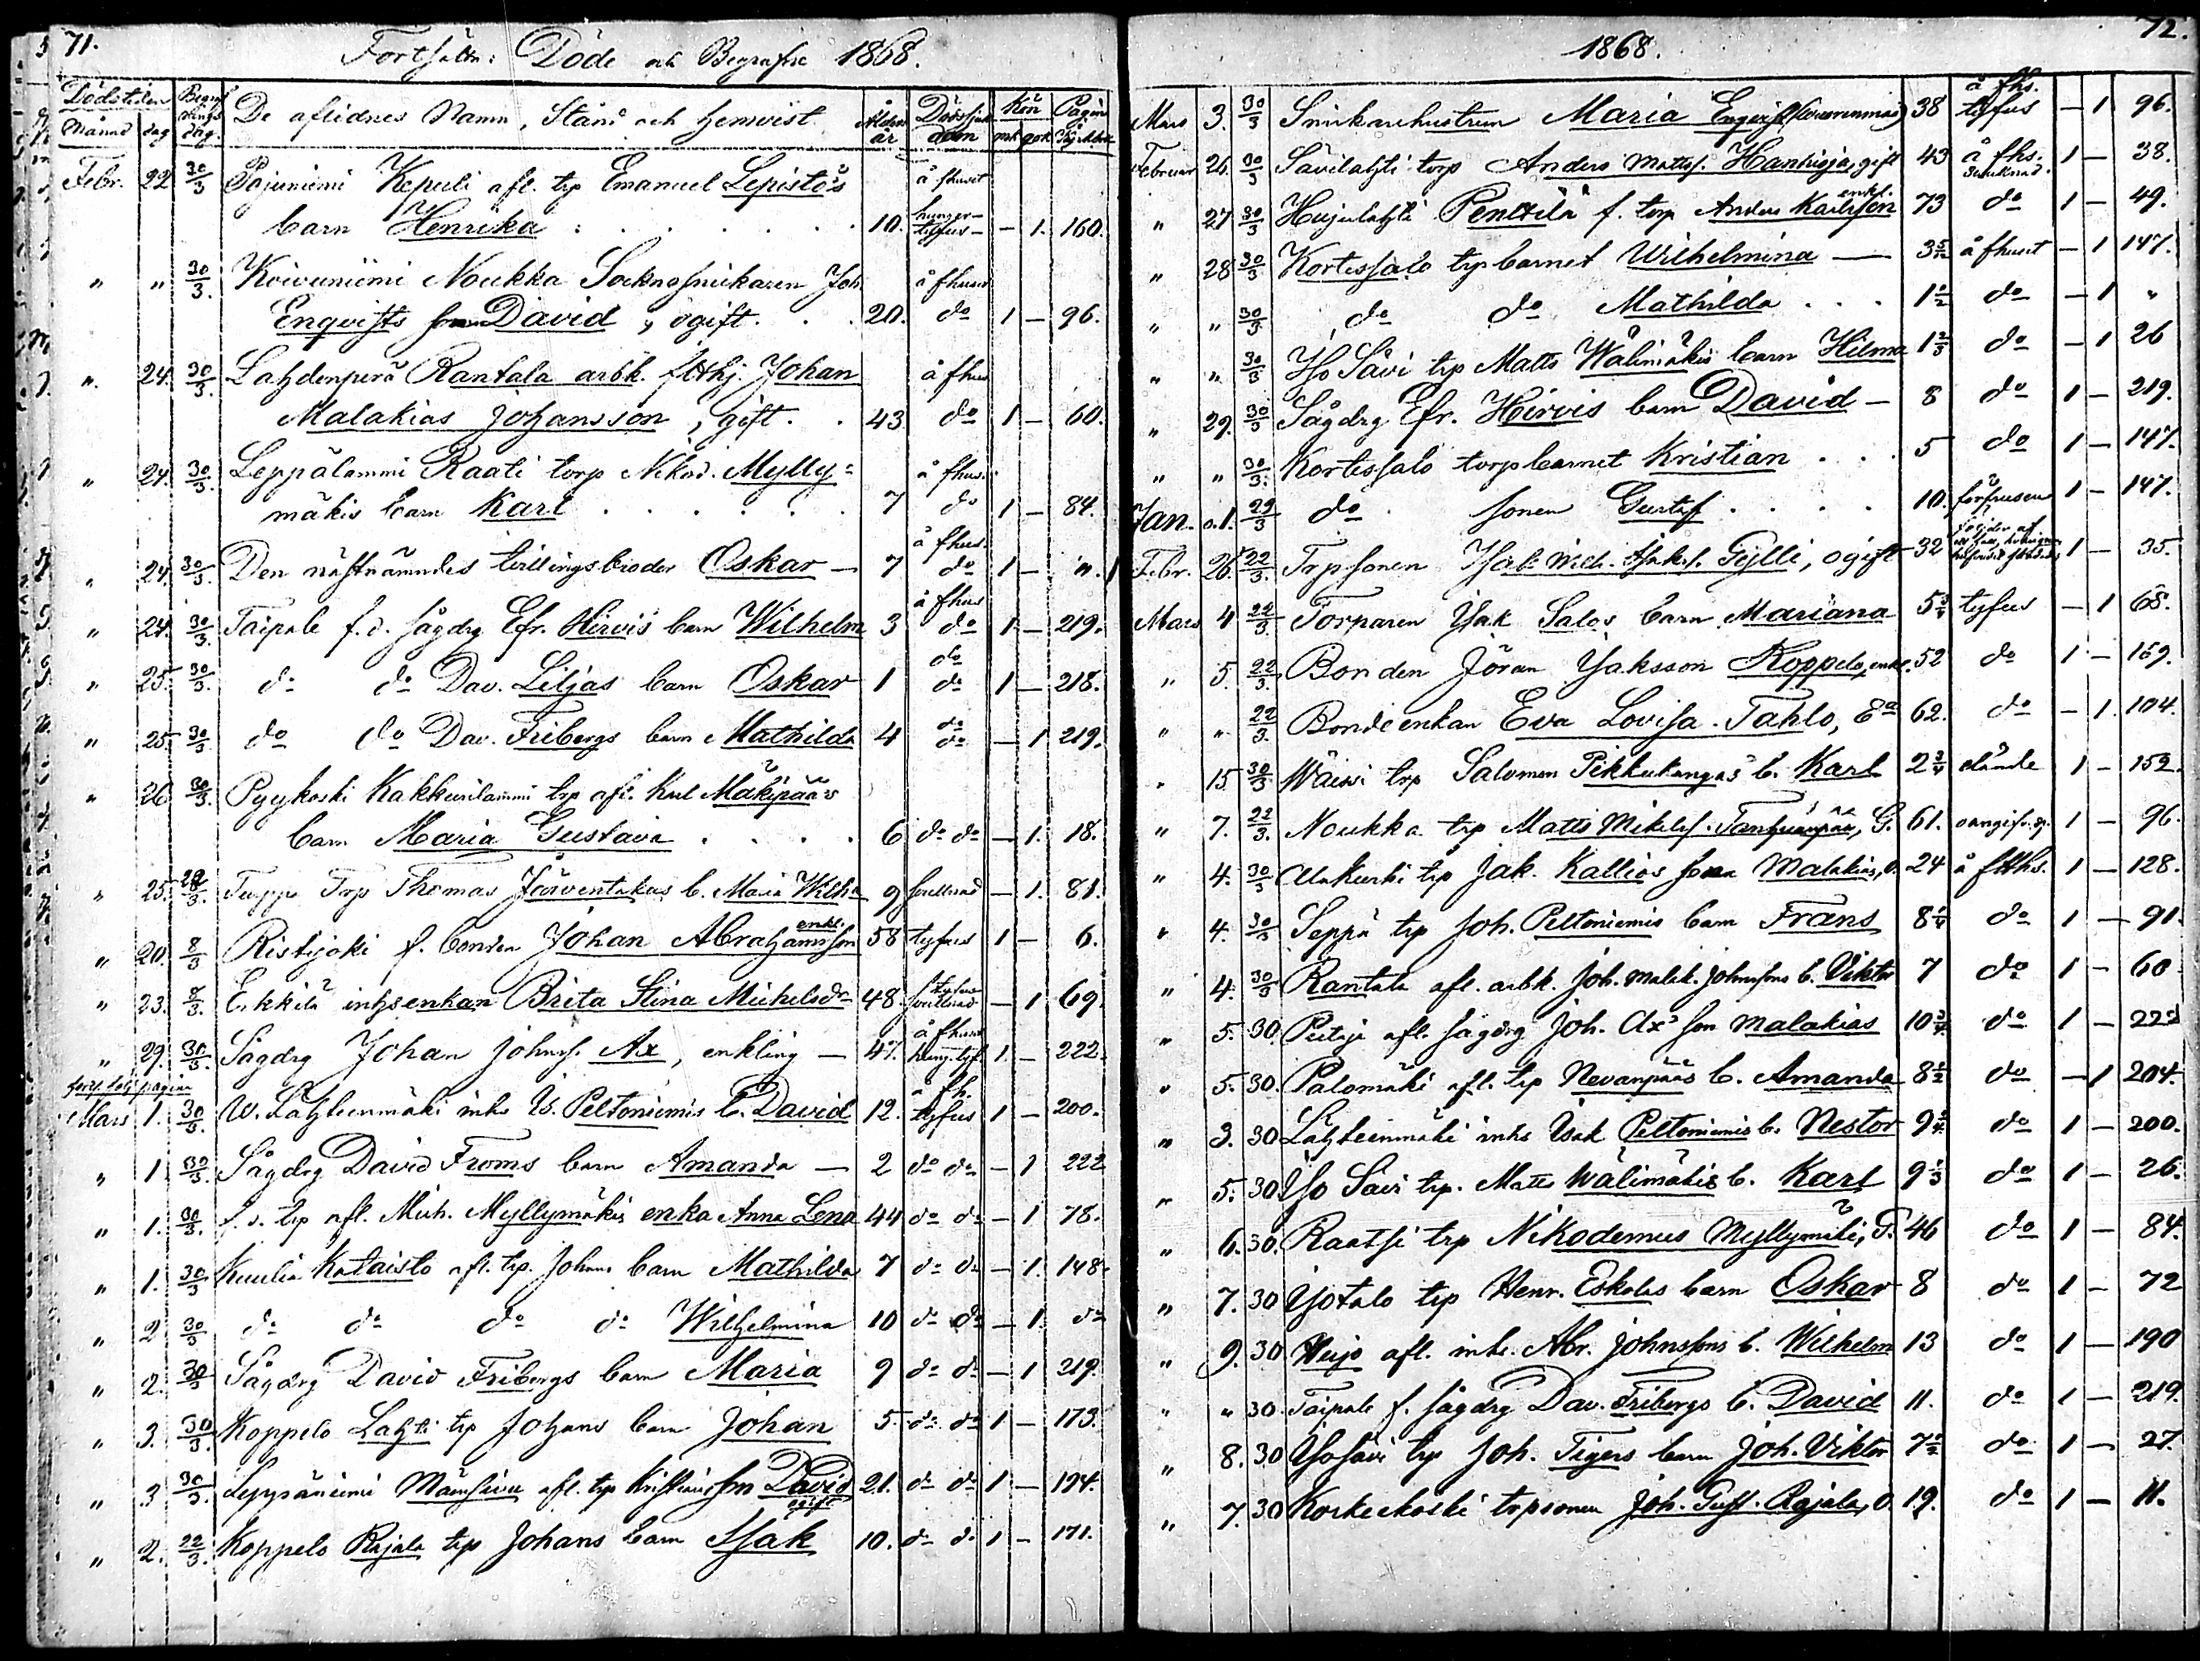 71.
Fortsättn: Döde och Begrafne 1868.
Dödstiden Begrafnings dag. De aflidnes Namn, Stånd och hemvist Ålder Dödssjukdom Kön Pagina
Månad dag år mk qvk Kyrkbok
Febr. 22 30/3 Pajuniemi Kepuli afl. trp Emanuel Lepistö's å fhuset
barn Henrika . . . . . 10. hunger-tyfus - 1. 160.
" " 30/3. Koivuniemi Noukka Socknesnickaren Joh. å fhuset
Enqvists son David, ogift. . . 20. do 1 - 96.
" 24. 30/3. Lahdenperä Rantala arbk. Johan å fhus
Malakias Johansson, gift. . 43. do 1 - 60.
" 24. 30/3. Leppälammi Raati torp Nikod. Mylly- å fhus.
mäkis barn Karl . . . . . 7 do 1 - 84.
" 24. 30/3. Den nästnämndes tvillingsbroder Oskar - 7 å fhus. do 1 - ".
" 24. 30/3. Taipale f.d. sågdrg Efr. Hirvis barn Wilhelm 3 å fhus do 1 - 219.
" 25. 30/3. do do Dav. Liljas barn Oskar 1 do do 1 - 218.
" 25. 30/3. do do Dav. Fribergs barn Mathilda 4 do do - 1 219.
" 26 30/3. Pyykoski Kakkurilammi trp afl. Karl Mäkipää's
barn Maria Gustava . . . . 6 do do - 1. 18.
" 25. Trp Thomas Järventakas b. Maria Wilh:a 9 - 1. 81.
" 20. 8/3 Ristijoki f. bonden Johan Abrahamsson enkl. 58 tyfus 1 - 6.
" 23. 8/3. Erkkilä inhysenkan Brita Stina Michelsdr 48. - 1 69.
" 29. 30/3. Sågdrg Johan Johnss. Ax, enkling - 47. å fhuset hung. tyf. 1. - 222.
forts. följ. pagina
Mars 1. 30/3. W. Lähteenmäki inhs Is. Peltoniemis b. David 12. å fh. tyfus 1 - 200.
" 1. 30/3. Sågdrg David Froms barn Amanda - 2 do do - 1 222
" 1. 30/3. f.d. trp afl. Mich. Myllymäkis enka Anna Lena 44 do do - 1 78.
" 1. 30/3 Kuulia Kataisto afl. trp. Johans barn Mathilda 7 do do - 1. 148.
" 2 30/3 do do do do Wilhelmina 10 do do - 1. do
" 2. 30/3 Sågdrg David Fribergs barn Maria 9 do do - 1 219.
" 3. 30/3. Koppelo Lahti trp Johans barn Johan 5. do do 1 - 173.
" 3 30/3. Leppäniemi afl. trp son David ogift 21. do do 1 - 194.
" 2. 22/3. Koppelo Rajala trp Johans barn Isak 10. do do 1 - 171.
72.
1868.
Mars 3. 30/3 Snickarehustrun Maria Enqvist 38 å fhs. tyfus - 1 96.
Februar 26. 30/3 Savilahti torp Anders Mattss. Hankioja, gift 43 å fhs. 1 - 38.
" 27 30/3 Hirjulahti Penttilä f. torp Anders Karlsson enkl. 73 do 1 - 49.
" 28 30/3 Kortessalo trpbarnet Wilhelmina - 3 å fhuset - 1 147.
" " 30/3 do do Mathilda . . . 1 1/2 do - 1 "
" " 30/3 Iso Savi trp Matts Wälimäkis barn Hilma 1 2/3 do - 1 26
" 29. 30/3 Sågdrg Efr. Hirvis barn David - 8 do 1 - 219.
" " 30/3. Kortessalo torpbarnet Kristian . . . 5 do 1 - 147.
Jan. 1. 29/3 do. sonen Gustaf . . . . 10. förfrusen 1 - 147.
Febr. 26. 22/3. Trpsonen Isak Gylli, ogift 32 följder af 1 - 35.
Mars 4 22/3. Torparen Isak Salos barn Mariana 5 3/4 tyfus - 1 68.
" 5. 22/3. Bonden Jöran Isaksson Koppelo, enkl. 52 do 1 - 169.
" " 22/3. Bondeenkan Eva Lovisa Tahlo, Ea 62. do - 1. 104.
" 15 30/3 trp Salomon Pikkukangas' b. Karl 2 3/4 elände 1 - 152.
" 7. 22/3. Noukka trp Matts Mikelss. G. 61. 1 - 96.
" 4. 30/3 trp Jak. Kallios son Malakias, O. 24 å ftths. 1 - 128.
" 4. 30/3 Seppä trp Joh. Peltoniemis barn Frans 8 do 1 - 91.
" 4. 30/3 Rantala afl. arbk. Joh. Malak. Johnssons b. Viktor 7 do 1 - 60
" 5. 30 afl. sågdrg Joh. Ax' son Malakias 10 3/4 do 1 - 222
" 5. 30. Palomäki afl. trp Nevanpääs b. Amanda 8 1/2 do - 1 204.
" 3. 30 Lähteenmäki inhs Isak Peltoniemis b. Nestor 9 do 1 - 200.
" 5. 30 Iso Savi trp. Matts Wälimäkis b. Karl 9 1/3 do 1 - 26.
" 6. 30. Raatsi trp Nikodemus Myllymäki, G. 46 do 1 - 84.
" 7. 30 Isotalo trp Henr. Eskolas barn Oskar 8 do 1 - 72
" 9. 30 Heijo afl. inhs. Abr. Johnssons b. Wilhelm 13 do 1 - 190
" " 30. Taipale f. sågdrg Dav. Fribergs b. David 11. do 1 - 219.
" 8. 30 Isosavi trp Joh. Tigers barn Joh. Viktor 7 1/2 do 1 - 27.
" 7. 30 Korkeekoski trpsonen Joh. Gust. Rajala, O 19. do 1 - 11.